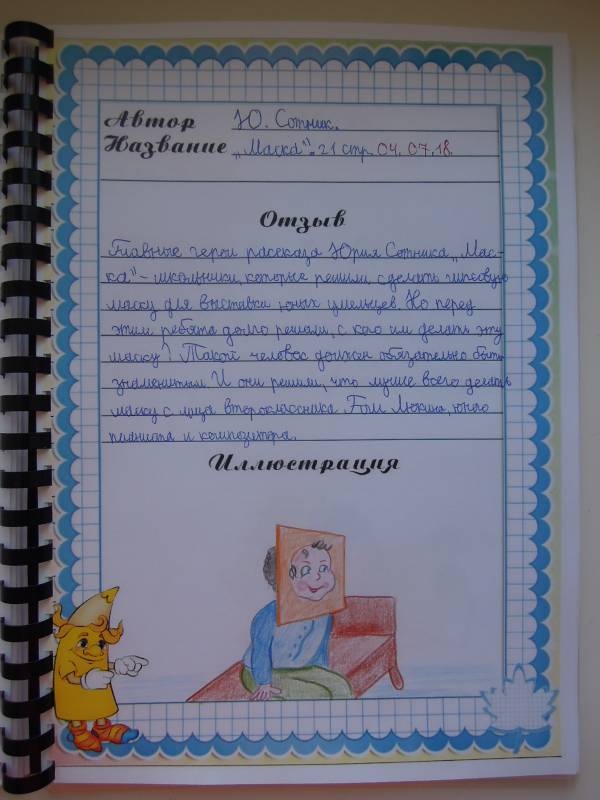 Автор Ю. Сотник.
Название „Маска". 21 стр. 04. 07. 18.
Отзыв
Главные герои рассказа Юрия Сотника „Мас-
ка" - школьники, которые решили, сделать гипсовую
маску для выставки юных умельцев. Но перед
этим ребята долго решали, с кого им делать эту
маску? Такой человек должен обязательно быть
знаменитым. И они решили, что лучше всего делать
маску с лица второклассника Пали Лыкина, юного
пианиста и композитора.
Иллюстрация